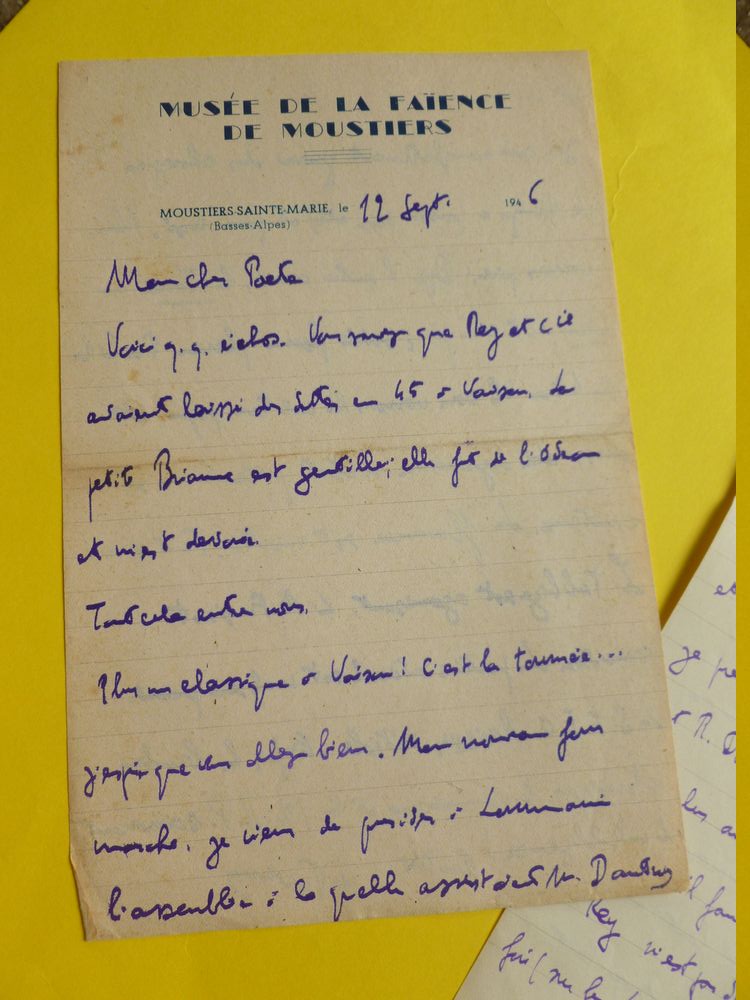 MUSÉE DE LA FAÏENCE
DE MOUSTIERS
MOUSTIERS-SAINTE-MARIE, le 12 Sept. 1946
(Basses-Alpes)
Mon cher Poete
Voici q. q. echos. Vous savez que Rey et Cie
avaient laissé des dettes en 45 à Vaison. La
petite est gentille; elle fit de l'
et m'est
Tout cela entre nous.
Plus un classique à Vaison! C'est la tournée...
j'espère que vous allez bien. Mon nouveau four
marche. je viens de présider à
l'assemblée à la quelle assistait M.
et
je
à R. D
les
il fau
Rey n'est pas
fait sur le